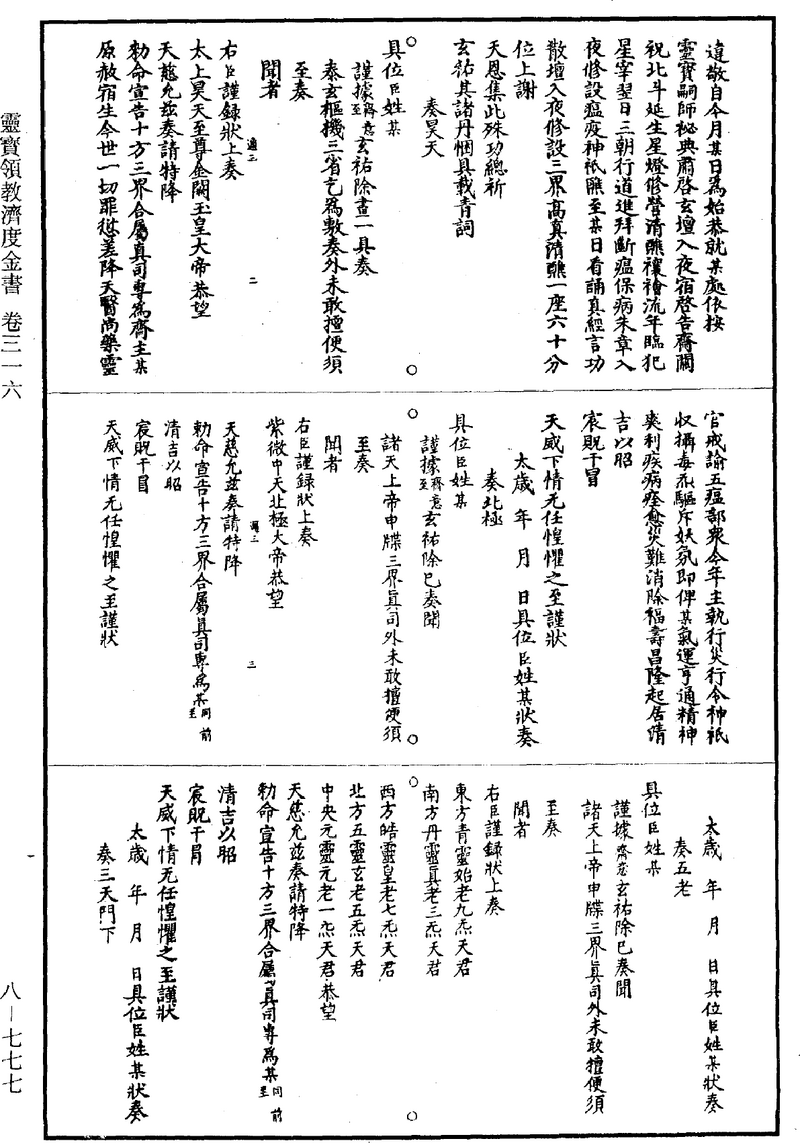 違敬自今月某日為始恭就某處依按
靈寶嗣師秘典肅啓玄壇入夜宿啓告齋關
祝北斗延生星燈修營清醮禳禬流年臨犯
星宰翌日三朝行道進拜斷瘟保病朱章入
夜修設瘟疫神祇醮至某日看誦真經言功
散壇入夜修設三界高真清醮一座六十分
位上謝
天恩集此殊功總祈
玄祐其諸丹悃具載青詞
奏昊天
具位臣姓某
謹據齋意至玄祐除畫一具奏
泰玄樞機三省乞為敷奏外未敢擅便須
至奏
聞者
右臣謹録狀上奏
太上昊天至尊金闕玉皇大帝恭望
天慈允茲奏請特降
勑命宣告十方三界合屬真司專為齊主某
原赦宿生今世一切罪愆差降天醫尚藥靈
官戒諭五瘟部衆今年主執行災行令神祇
収攝毒炁驅斥妖氛即俾某氣運亨通精神
爽利疾病痊愈災難消除福壽昌隆起居清
吉以昭
宸貺干冒
天威下情无任惶懼之至謹狀
太歲　年　月　日具位臣姓某狀奏
奏北極
具位臣姓某
謹據齋意至玄祐除已奏聞
諸天上帝申牒三界真司外未敢擅便須
至奏
聞者
右臣謹録狀上奏
紫微中天北極大帝恭望
天慈允茲奏請特降
勑命宣告十方三界合屬真司專為某同前至
清吉以昭
宸貺干冒
天威下情无任惶懼之至謹狀
太歲　年　月　日具位臣姓某狀奏
奏五老
具位臣姓某
謹據齋意玄祐除已奏聞
諸天上帝申牒三界真司外未敢擅便須
至奏
聞者
右臣謹録狀上奏
東方青靈始老九炁天君
南方丹靈真老三炁天君
西方皓靈皇老七炁天君
北方五靈玄老五炁天君
中央元靈元老一炁天君恭望
天慈允茲奏請特降
勑命宣告十方三界合屬真司專為某同前至
清吉以昭
宸貺干冒
天威下情无任惶懼之至謹狀
太歲　年　月　日具位臣姓某狀奏
奏三天門下
靈寶領教濟度金書　卷三一六
八—七七七